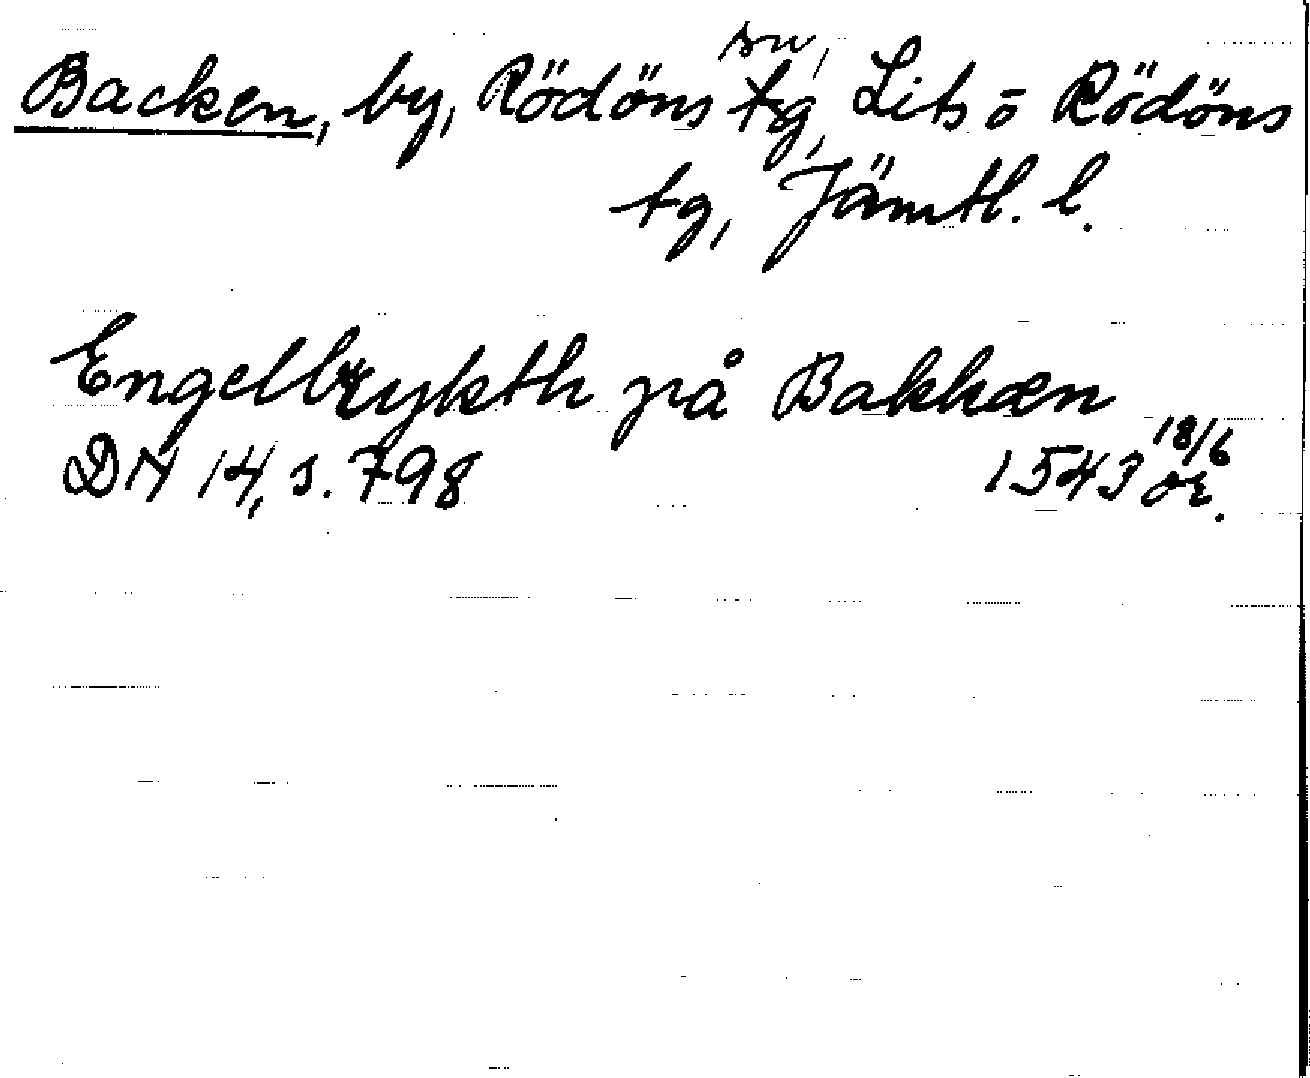 Backen, by, Rödöns sn, Lits o Rödöns
tg, Jämtl. l.
Engelbrykth på Bakkæn
DN 14, s. 798 1543 18/6 or.